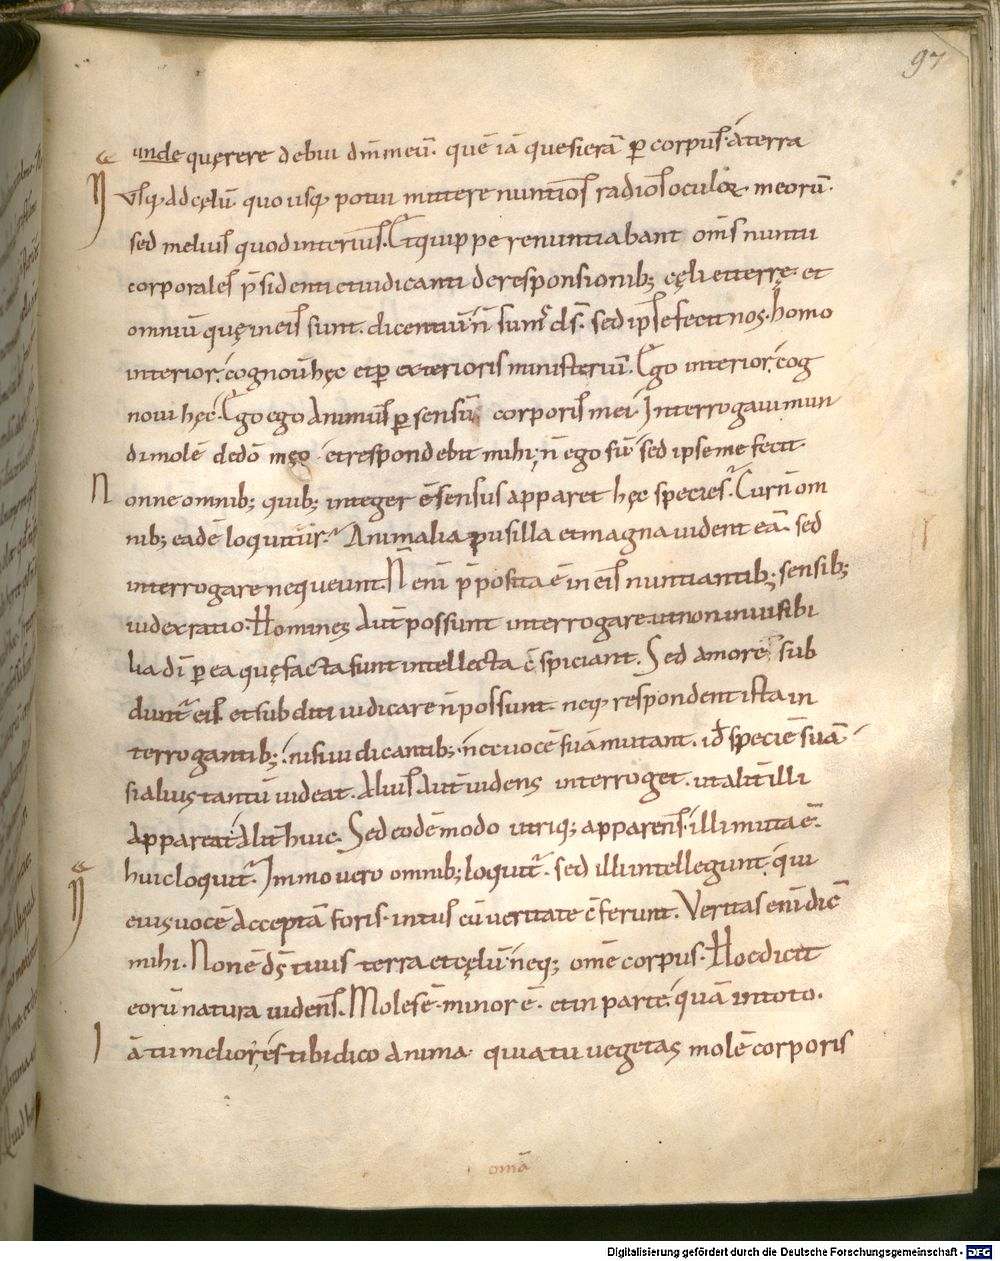 97
unde quęrere debui dm̄ meū. quē iā quesierā ꝑ corpus. á terra
usq; ad cęlū. quousq; potui mittere nuntios radios oculoꝝ meorū.
sed melius quod interius. Et quippe renuntiabant om̄s nuntii
corporales p̄sidenti et iudicanti de responsionib; cęli et terrę. et
omniū quę in eis sunt. dicentiū. n̄ sum᷒ ds̄. sed ipse fecit nos. homo
interior. cognoui hęc et ꝑ exterioris ministeriū. Ego interior. cog
noui hęc. Ego ego animus ꝑ sensū corporis mei. Interrogaui mun
di molē de dō meo. et respondebit mihi; n̄ ego sū. sed ipse me fecit.
Nonne omnib; quib; integer ē sensus apparet hęc species. Cur n̄ om
nib; eadē loquitur. Animalia pusilla et magna uident eā. sed
interrogare nequeunt. N̄ enī p̄posita ē in eis nuntiantib; sensib;
iudex ratio. Homines aut̄ possunt interrogare. ut non inuisibi
lia dī ꝑ ea quę facta sunt intellecta c̄spiciant. Sed amore sub
dunt᷒ eis. et subditi iudicare n̄ possunt. neq; respondent ista in
terrogantib; nisi iudicantib;. nec uocē suā mutant. id ē speciē suā
si alius tantū uideat. alius aut̄ uidens interroget. ut alit̄ illi
appareat alit̄ huic. Sed eodē modo utriq; apparens. illi muta ē.
huic loquit᷒. Immo uero omnib; loquit᷒. sed illi intellegunt. qui
eius uocē acceptā foris. intus cū ueritate c̄ferunt. Veritas enī dic̄
mihi. Non ē ds̄ tuus terra et cęlū. neq; om̄e corpus. Hoc dicit
eorū natura uidens. Moles ē. minor ē. et in parte. quā in toto.
Iā tu melior es. tibi dico anima. quia tu uegetas molē corporis
omā
Digitalisierung gefördert durch die Deutsche Forschungsgemeinschaft - DFG